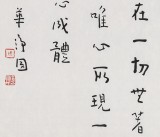 在一切世若
唯心所現一
心成體
華淨因